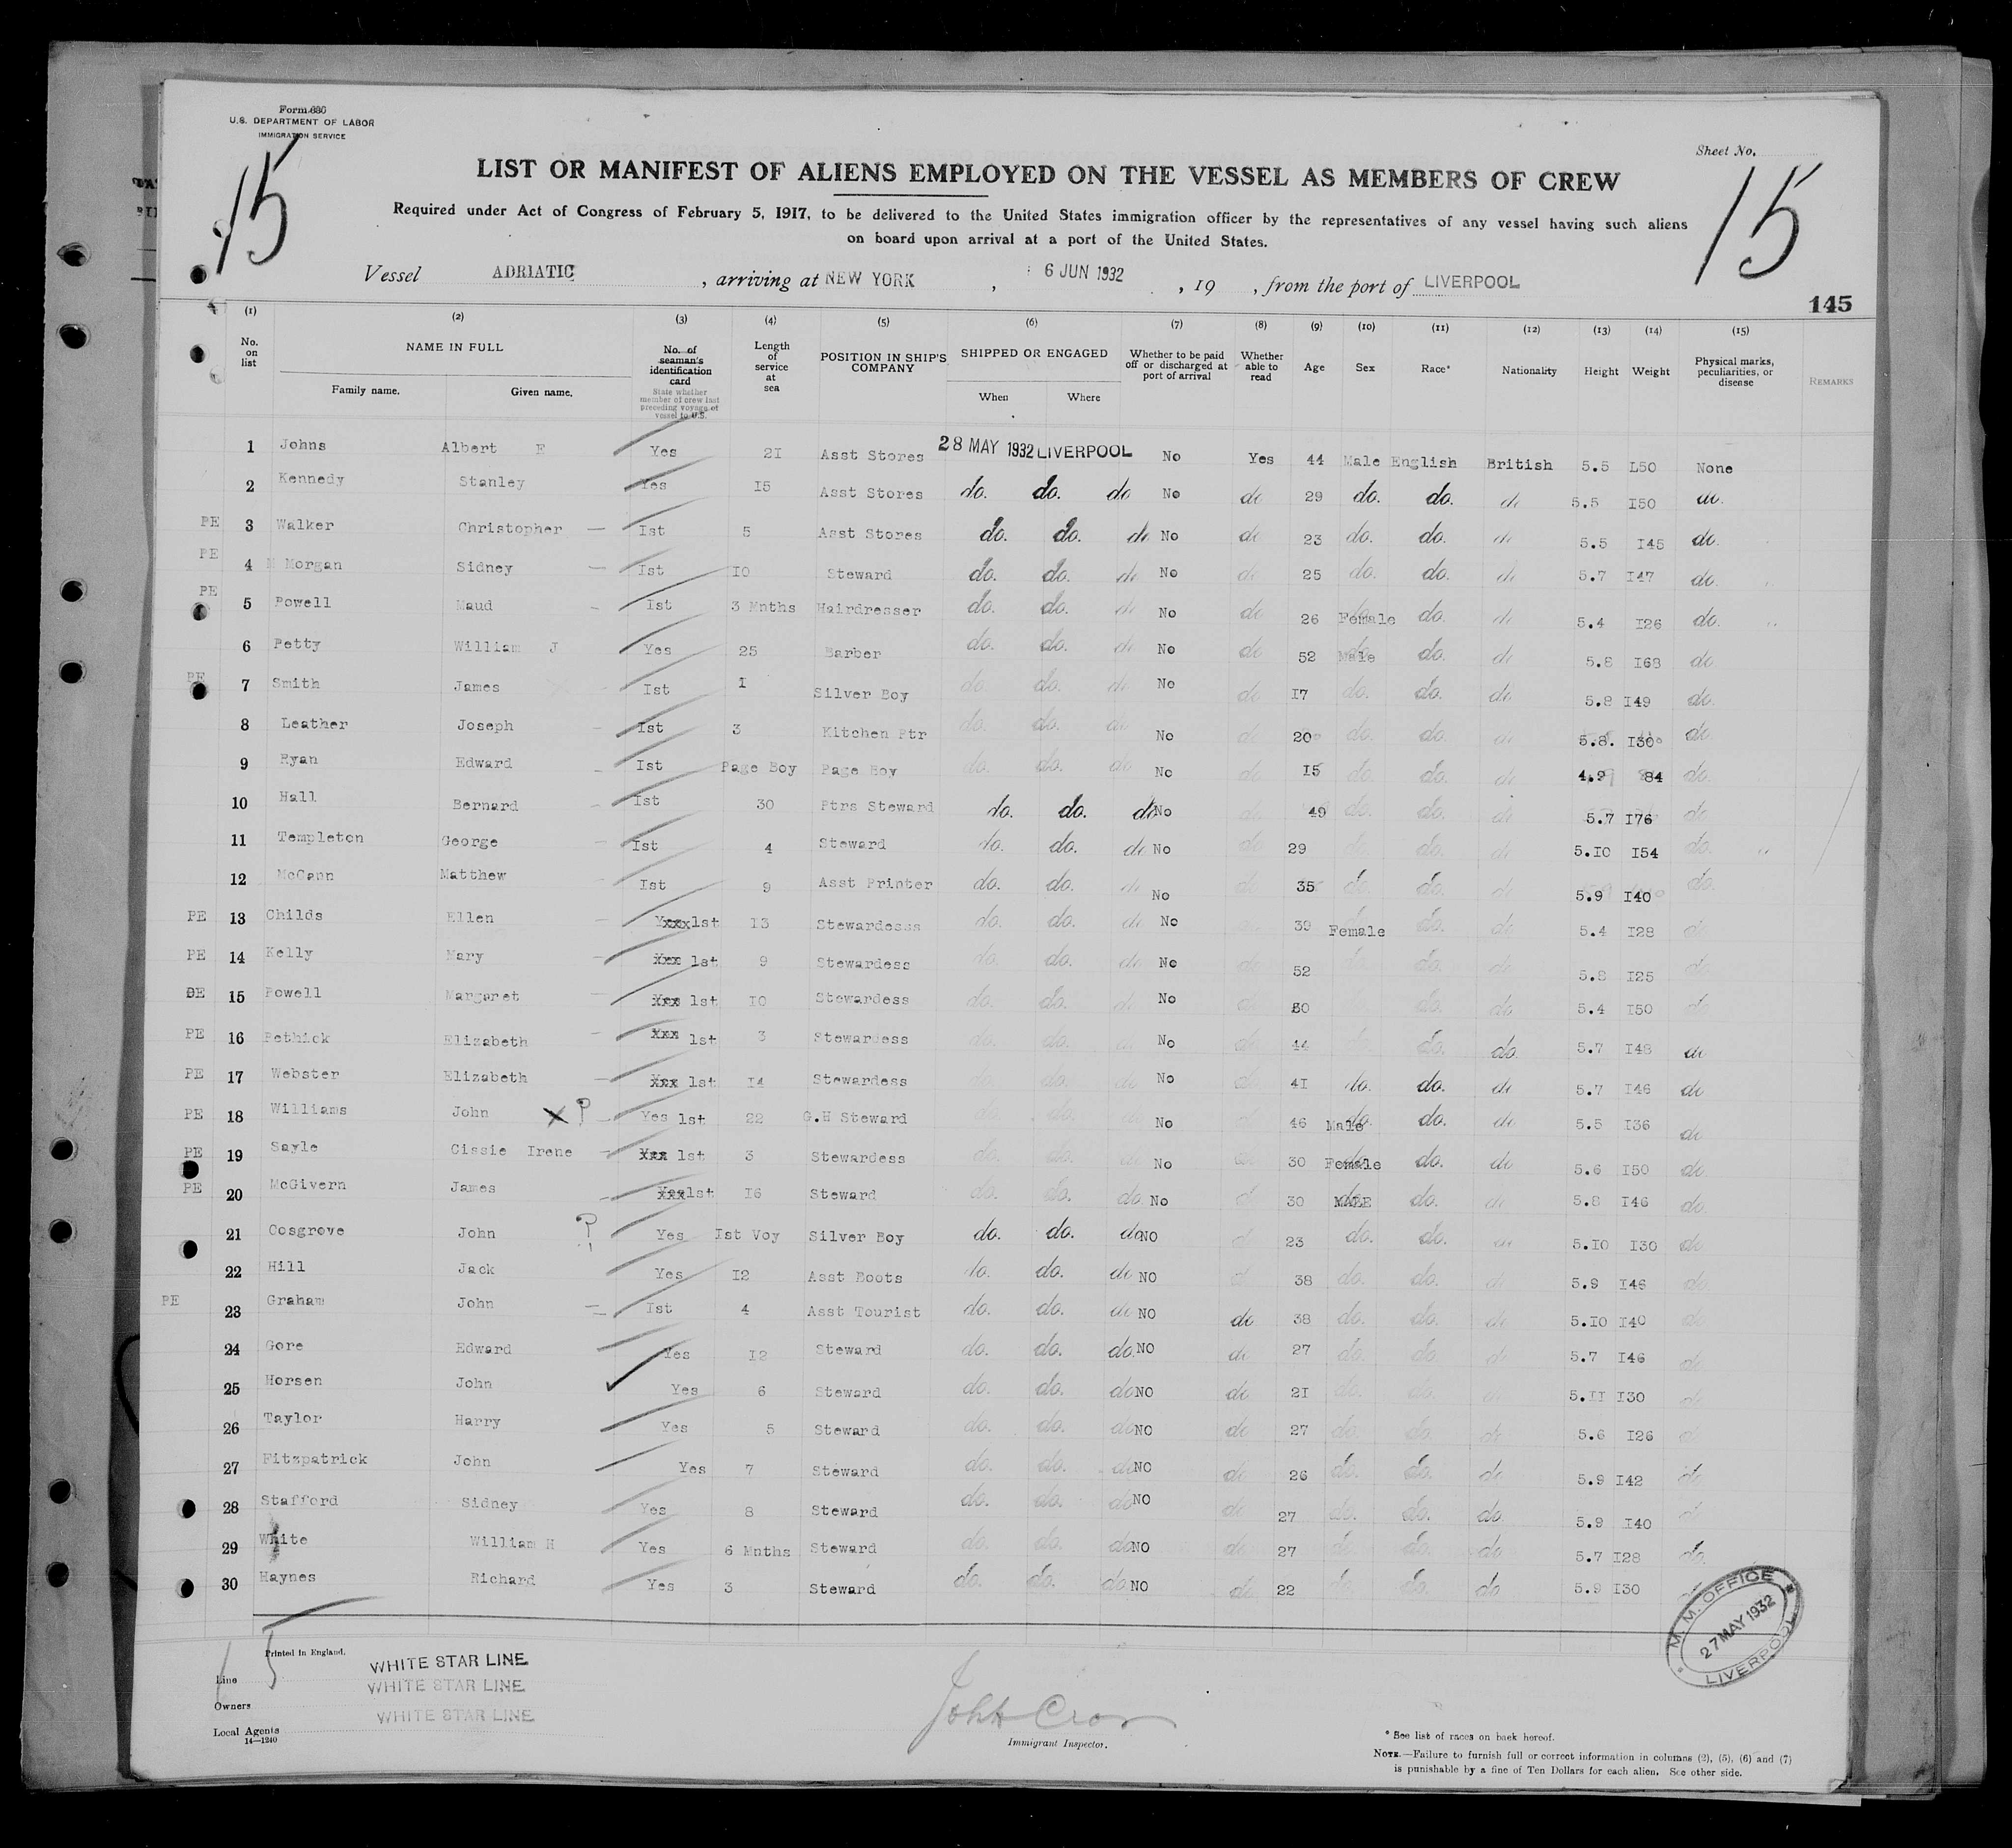 Form 680
U.S. DEPARTMENT OF LABOR
IMMIGRATION SERVICE
Sheet No.
15 15
LIST OR MANIFEST OF ALIENS EMPLOYED ON THE VESSEL AS MEMBERS OF CREW
Required under Act of Congress of February 5, 1917, to be delivered to the United States immigration officer by the representatives of any vessel having such aliens
on board upon arrival at a port of the United States.
Vessel ADRIATIC, arriving at NEW YORK, 6 JUN 1932, 19 , from the port of LIVERPOOL
145
(1) (2) (3) (4) (5) (6) (7) (8) (9) (10) (11) (12) (13) (14) (15)
No. on list NAME IN FULL Family name. Given name. No. of seaman's identification card State whether member of crew last preceding voyage of vessel to U.S. Length of service at sea POSITION IN SHIP'S COMPANY SHIPPED OR ENGAGED When Where Whether to be paid off or discharged at port of arrival Whether able to read Age Sex Race* Nationality Height Weight Physical marks, peculiarities, or disease REMARKS
1 Johns Albert E Yes 21 Asst Stores 28 MAY 1932 LIVERPOOL No Yes 44 Male English British 5.5 L50 None
2 Kennedy Stanley Yes 15 Asst Stores do. do. do No do 29 do. do. do 5.5 I50 do.
PE 3 Walker Christopher — Ist 5 Asst Stores do. do. do No do 23 do. do. do 5.5 I45 do.
PE 4 Morgan Sidney — Ist I0 Steward do. do. do No do 25 do. do. do 5.7 I47 do.
PE 5 Powell Maud - Ist 3 Mnths Hairdresser do. do. do No do 26 Female do. do 5.4 I26 do.
6 Petty William J Yes 25 Barber do. do. do No do 52 Male do. do 5.8 I68 do
PE 7 Smith James Ist I Silver Boy do. do. do No do I7 do. do. do 5.8 I49 do.
8 Leather Joseph - Ist 3 Kitchen Ptr do. do. do No do 20 do. do. do 5.8. I30 do
9 Ryan Edward - Ist Page Boy Page Boy do. do. do No do I5 do. do. do 4.9 84 do.
10 Hall Bernard - Ist 30 Ptrs Steward do. do. do No do 49 do. do. do 5.7 I76 do
11 Templeton George - Ist 4 Steward do. do. do No do 29 do. do 5.I0 I54 do.
12 McCann Matthew Ist 9 Asst Printer do. do. do No do 35 do. do. do 5.9 I40 do.
PE 13 Childs Ellen — Yes xxx 1st I3 Stewardesss do. do. do No 39 Female do. do 5.4 I28 d
PE 14 Kelly Mary — Yes xxx 1st 9 Stewardess do. do. do No do 52 do. do 5.8 I25 d
PE 15 Powell Margaret — Yes xxx 1st I0 Stewardess do. do. do No do 50 do. do 5.4 I50 d
PE 16 Pethick Elizabeth - xxx 1st 3 Stewardess do. do. No do 44 do. do. 5.7 I48 do
PE 17 Webster Elizabeth — xxx 1st I4 Stewardess do. do. do No do 41 do. do. do 5.7 I46 do
PE 18 Williams John X ? - Yes 1st 22 G.H Steward do. No 46 Male do. do 5.5 I36 do
PE 19 Sayle Cissie Irene - Yes xxx 1st 3 Stewardess do. do. do No do 30 Female do. do 5.6 I50 do
PE 20 McGivern James - Yes xxx 1st I6 Steward do. do. do. No d 30 MALE do. do 5.8 I46 do
21 Cosgrove John ? Yes Ist Voy Silver Boy do. do. do NO d 23 do. do. do 5.I0 I30 do
22 Hill Jack Yes I2 Asst Boots do. do. do NO d 38 do. do. do 5.9 I46 do
PE 23 Graham John — Ist 4 Asst Tourist do. do. do NO do 38 do. do. do 5.I0 I40 do
24 Gore Edward Yes I2 Steward do. do. do. NO do 27 do. do do 5.7 I46 d
25 Horsen John Yes 6 Steward do. do. do NO do 2I do. do. do 5.II I30 d
26 Taylor Harry Yes 5 Steward do. do. do NO do 27 do. do. do 5.6 I26 d
27 Fitzpatrick John Yes 7 Steward do. do. do NO do 26 do. do. do 5.9 I42 do
28 Stafford Sidney Yes 8 Steward do. do. do NO do 27 do. do. do. 5.9 I40 d
29 White William H Yes 6 Mnths Steward do. do. do NO do 27 do. do. do 5.7 I28 do.
30 Haynes Richard Yes 3 Steward do. do. do NO do 22 do. do. do 5.9 I30
M. M. OFFICE
27 MAY 1932
LIVERPOOL
Printed in England.
Line WHITE STAR LINE
Owners WHITE STAR LINE
Local Agents WHITE STAR LINE
14—1240
Immigrant Inspector.
* See list of races on back hereof.
NOTE.—Failure to furnish full or correct information in columns (2), (5), (6) and (7)
is punishable by a fine of Ten Dollars for each alien. See other side.